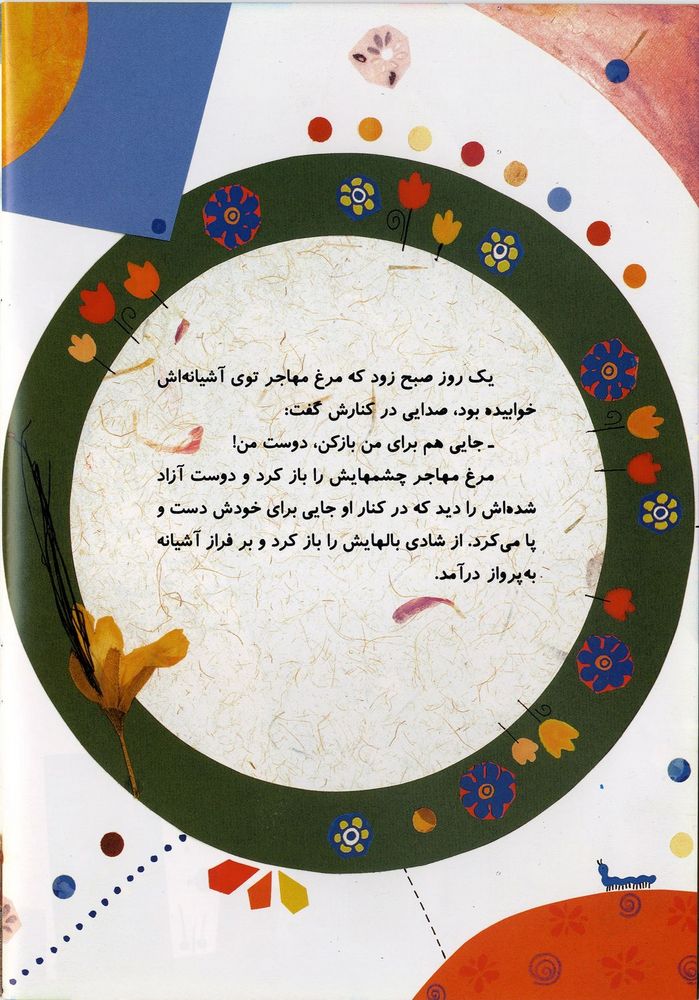 یک روز صبح زود که مرغ مهاجر توی آشیانه‌اش
خوابیده بود، صدایی در کنارش گفت:
ـ جایی هم برای من بازکن، دوست من!
مرغ مهاجر چشمهایش را باز کرد و دوست آزاد
شده‌اش را دید که در کنار او جایی برای خودش دست و
پا می‌کرد. از شادی بالهایش را باز کرد و بر فراز آشیانه
به‌پرواز درآمد.